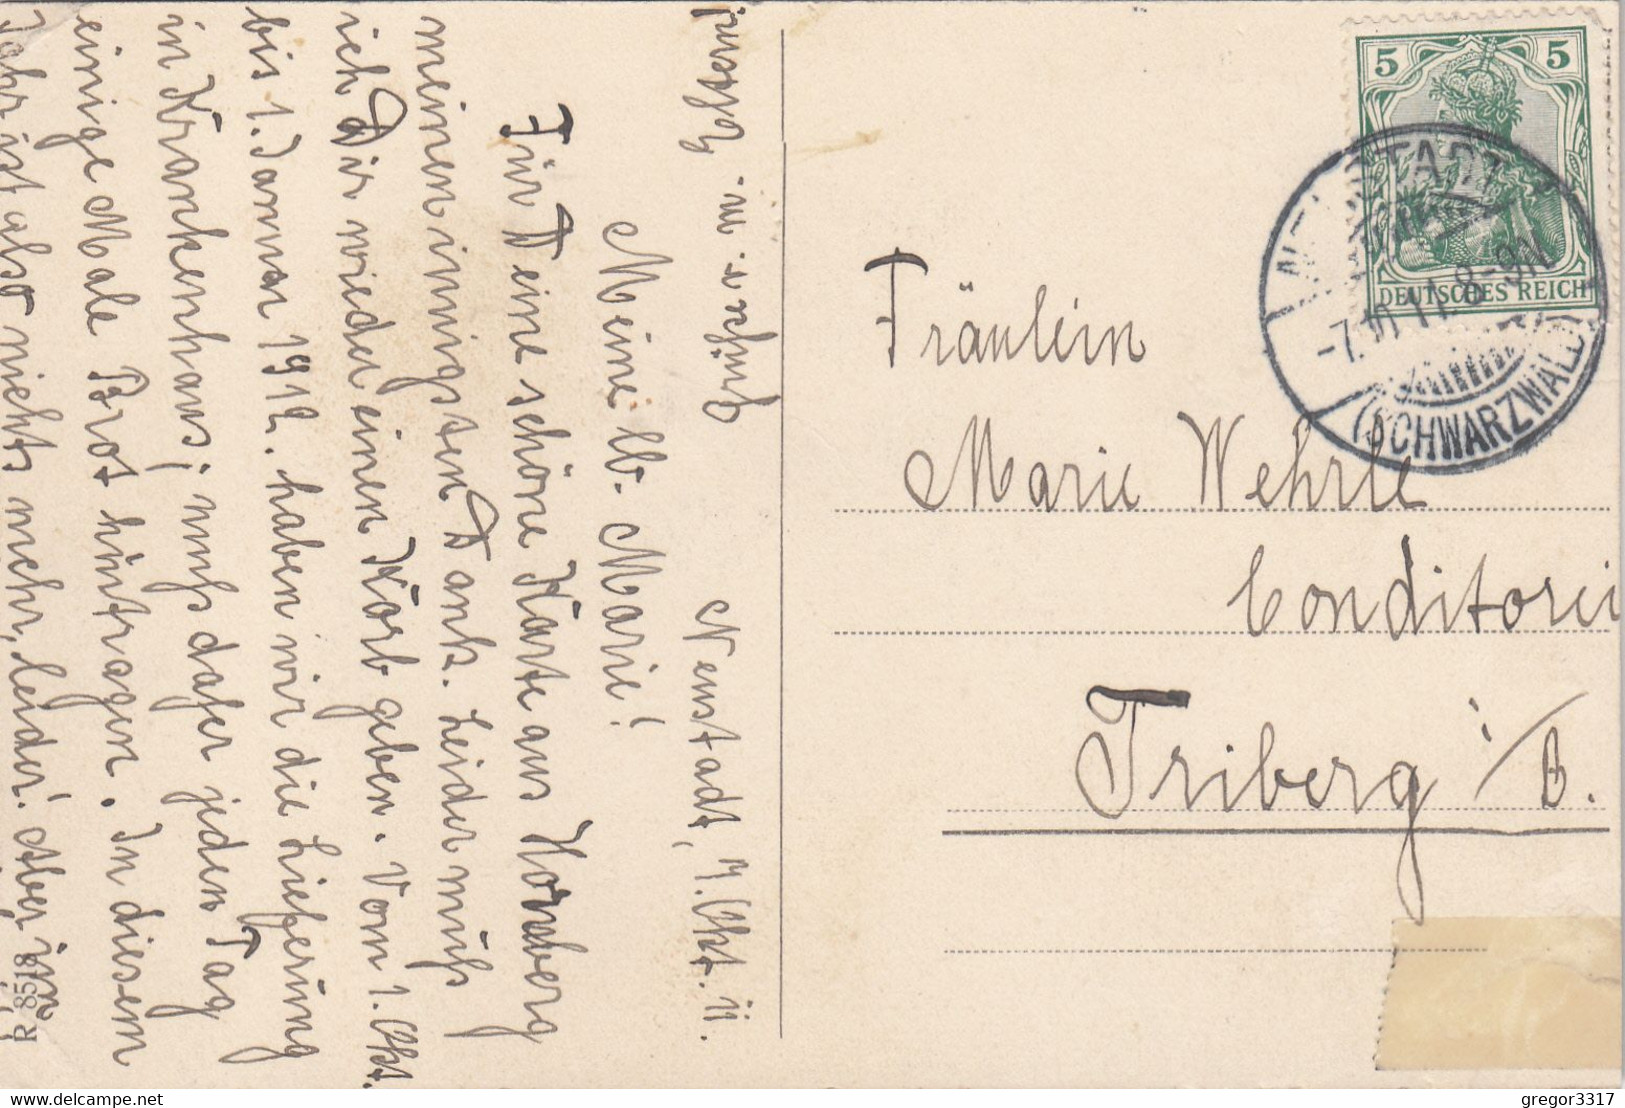 Neustadt, 7. Okt. 11.
Meine lb. Marie!
Für Deine schöne Karte aus Hornberg
meinen innigsten Dank. Leider muß
ich Dir wieder einen Korb geben. Vom 1. Okt.
bis 1. Januar 1912. haben wir die Lieferung
in Krankenhaus; muß daher jeden Tag
einige Male Brot hintragen. In diesem
Jahr ist also nichts mehr, leider! Aber im
R 8518
5 5
DEUTSCHES REICH
NEUSTADT
-7.10.11. 8-9N
(SCHWARZWALD)
Fräulein
Marie Wehrle
Conditorei
Triberg i/B.
gregor3317